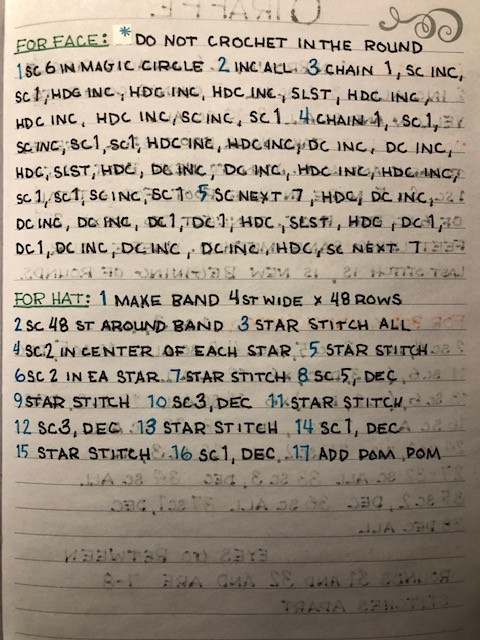 FOR FACE: * DO NOT CROCHET IN THE ROUND
1 SC 6 IN MAGIC CIRCLE 2 INC ALL 3 CHAIN 1, SC INC,
SC 1, HDC INC, HDC INC, HDC INC, SLST, HDC INC,
HDC INC, HDC INC, SC INC, SC 1 4 CHAIN 1, SC 1,
SC INC, SC 1, SC 1, HDC INC, HDC INC, DC INC, DC INC,
HDC, SLST, HDC, DC INC, DC INC, HDC INC, HDC INC,
SC 1, SC 1, SC INC, SC 1 5 SC NEXT 7, HDC, DC INC,
DC INC, DC INC, DC 1, DC 1, HDC, SLST, HDC, DC 1,
DC 1, DC INC, DC INC, DC INC, HDC, SC NEXT 7
FOR HAT: 1 MAKE BAND 4 ST WIDE X 48 ROWS
2 SC 48 ST AROUND BAND 3 STAR STITCH ALL
4 SC 2 IN CENTER OF EACH STAR 5 STAR STITCH
6 SC 2 IN EA STAR 7 STAR STITCH 8 SC 5, DEC
9 STAR STITCH 10 SC 3, DEC 11 STAR STITCH
12 SC 3, DEC 13 STAR STITCH 14 SC 1, DEC
15 STAR STITCH 16 SC 1, DEC 17 ADD POM POM